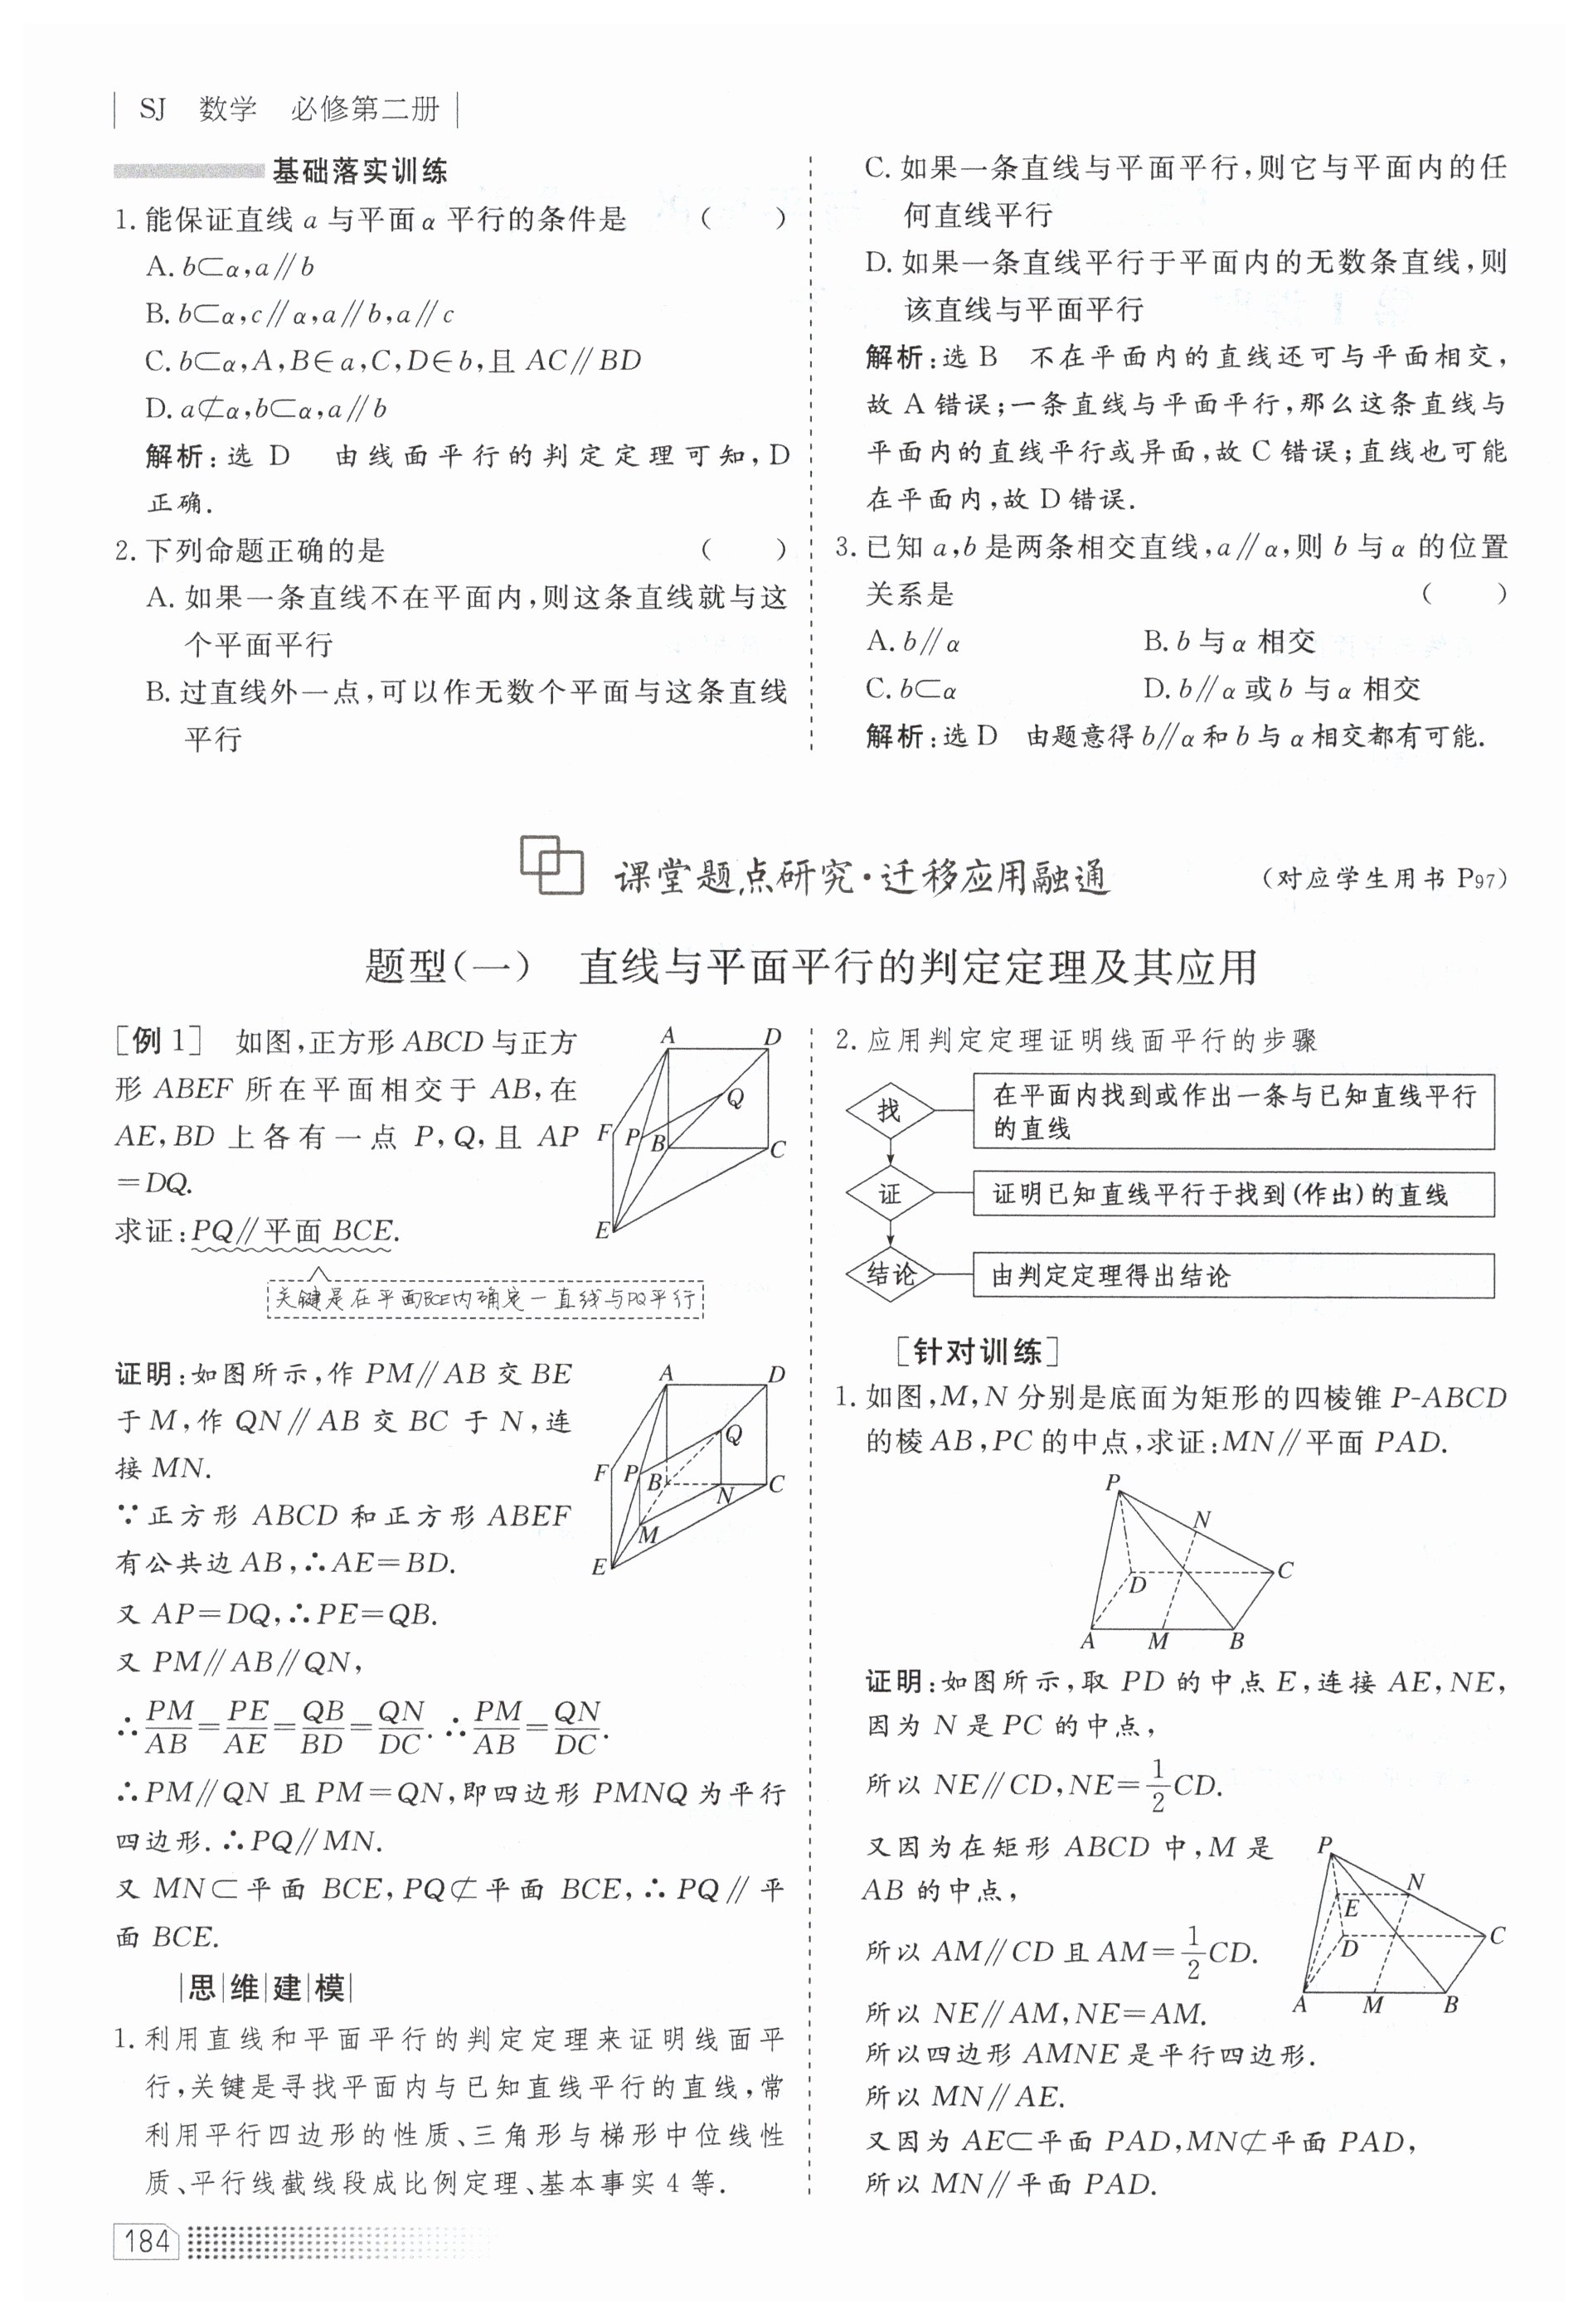 SJ 数学 必修第二册
基础落实训练
1. 能保证直线 a 与平面 α 平行的条件是 ( )
A. b⊂α,a∥b
B. b⊂α,c∥α,a∥b,a∥c
C. b⊂α,A,B∈a,C,D∈b,且 AC∥BD
D. a⊄α,b⊂α,a∥b
解析:选 D 由线面平行的判定定理可知,D
正确.
2. 下列命题正确的是 ( )
A. 如果一条直线不在平面内,则这条直线就与这
个平面平行
B. 过直线外一点,可以作无数个平面与这条直线
平行
C. 如果一条直线与平面平行,则它与平面内的任
何直线平行
D. 如果一条直线平行于平面内的无数条直线,则
该直线与平面平行
解析:选 B 不在平面内的直线还可与平面相交,
故 A 错误;一条直线与平面平行,那么这条直线与
平面内的直线平行或异面,故 C 错误;直线也可能
在平面内,故 D 错误.
3. 已知 a,b 是两条相交直线,a∥α,则 b 与 α 的位置
关系是 ( )
A. b∥α B. b 与 α 相交
C. b⊂α D. b∥α 或 b 与 α 相交
解析:选 D 由题意得 b∥α 和 b 与 α 相交都有可能.
课堂题点研究·迁移应用融通 (对应学生用书 P97)
题型(一) 直线与平面平行的判定定理及其应用
[例 1] 如图,正方形 ABCD 与正方
形 ABEF 所在平面相交于 AB,在
AE,BD 上各有一点 P,Q,且 AP
=DQ.
求证:PQ∥平面 BCE.
A D
Q
F P B C
E
关键是在平面BCE内确定一直线与PQ平行
证明:如图所示,作 PM∥AB 交 BE
于 M,作 QN∥AB 交 BC 于 N,连
接 MN.
∵正方形 ABCD 和正方形 ABEF
有公共边 AB,∴AE=BD.
A D
Q
F P B C
N
M
E
又 AP=DQ,∴PE=QB.
又 PM∥AB∥QN,
∴PM/AB=PE/AE=QB/BD=QN/DC. ∴PM/AB=QN/DC.
∴PM∥QN 且 PM=QN,即四边形 PMNQ 为平行
四边形. ∴PQ∥MN.
又 MN⊂平面 BCE,PQ⊄平面 BCE,∴PQ∥平
面 BCE.
|思|维|建|模|
1. 利用直线和平面平行的判定定理来证明线面平
行,关键是寻找平面内与已知直线平行的直线,常
利用平行四边形的性质、三角形与梯形中位线性
质、平行线截线段成比例定理、基本事实 4 等.
2. 应用判定定理证明线面平行的步骤
找 在平面内找到或作出一条与已知直线平行
的直线
证 证明已知直线平行于找到(作出)的直线
结论 由判定定理得出结论
[针对训练]
1. 如图,M,N 分别是底面为矩形的四棱锥 P-ABCD
的棱 AB,PC 的中点,求证:MN∥平面 PAD.
P
N
D C
A M B
证明:如图所示,取 PD 的中点 E,连接 AE,NE,
因为 N 是 PC 的中点,
所以 NE∥CD,NE=1/2CD.
又因为在矩形 ABCD 中,M 是
AB 的中点,
所以 AM∥CD 且 AM=1/2CD.
所以 NE∥AM,NE=AM.
P
N
E
D C
A M B
所以四边形 AMNE 是平行四边形.
所以 MN∥AE.
又因为 AE⊂平面 PAD,MN⊄平面 PAD,
所以 MN∥平面 PAD.
184